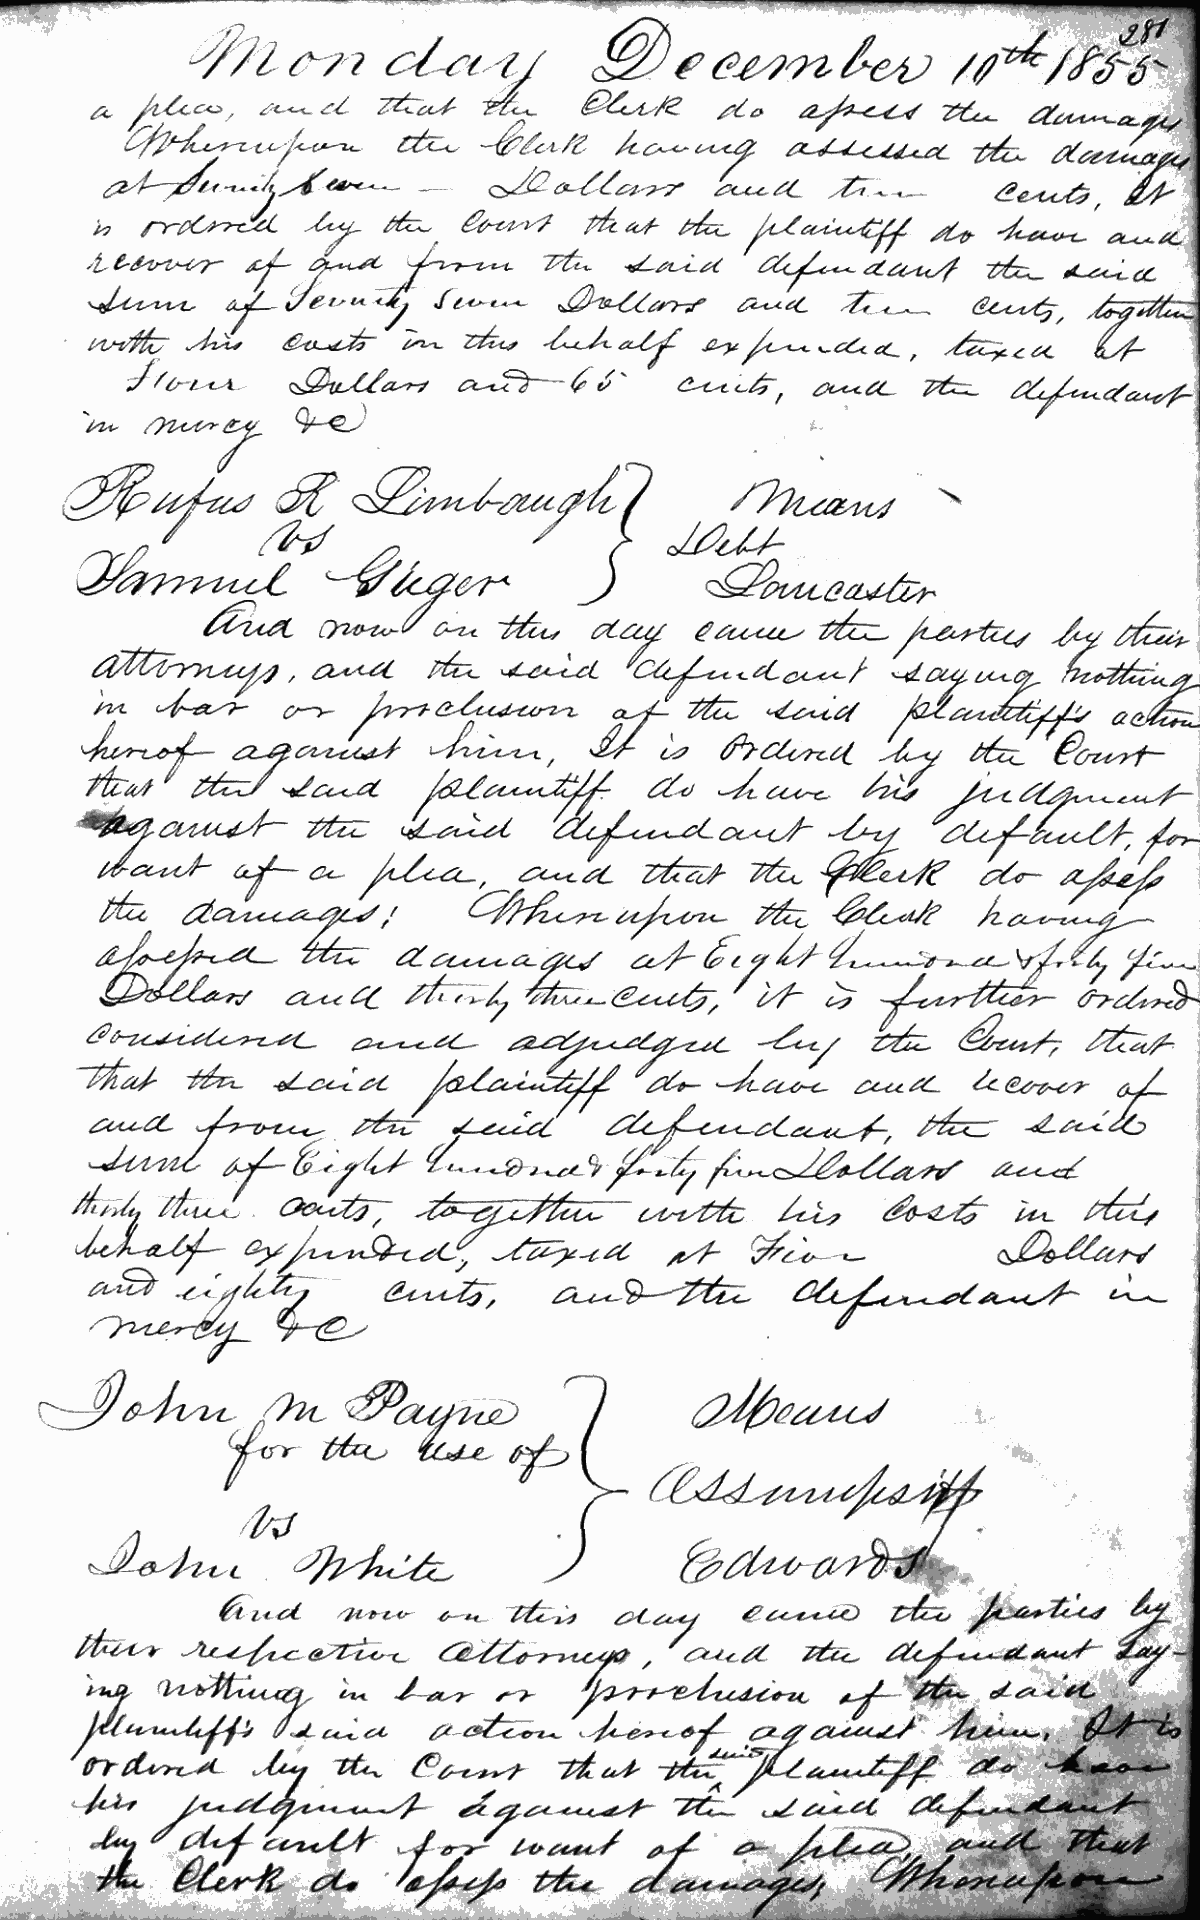 281
Monday December 10th 1855
a plea, and that the Clerk do assess the damages
Whereupon the Clerk having assessed the damages
at Seventy Seven — Dollars and ten cents, it
is ordered by the Court that the plaintiff do have and
recover of and from the said defendant the said
sum of Seventy Seven Dollars and ten cents, together
with his costs in this behalf expended, taxed at
Four Dollars and 65 cents, and the defendant
in mercy &C
Rufus R Limbaugh } Means
vs Debt
Samuel Guger Lancaster
And now on this day came the parties by their
attorneys, and the said defendant saying nothing
in bar or preclusion of the said plaintiff's action
hereof against him, It is ordered by the Court
that the said plaintiff do have his judgment
against the said defendant by default, for
want of a plea, and that the Clerk do assess
the damages; Whereupon the Clerk having
assessed the damages at Eight hundred & forty five
Dollars and thirty three cents, it is further ordered
considered and adjudged by the Court, that
that the said plaintiff do have and recover of
and from the said defendant, the said
sum of Eight hundred forty five Dollars and
thirty three cents, together with his costs in this
behalf expended, taxed at Five Dollars
and eighty cents, and the defendant in
mercy &C
John M Payne } Means
for the use of
Assumpsit
vs
John White Edwards
And now on this day came the parties by
their respective attorneys, and the defendant say-
ing nothing in bar or preclusion of the said
plaintiff's said action hereof against him. It is
ordered by the Court that the said plaintiff do have
his judgment against the said defendant
by default for want of a plea, and that
the Clerk do assess the damages, Whereupon